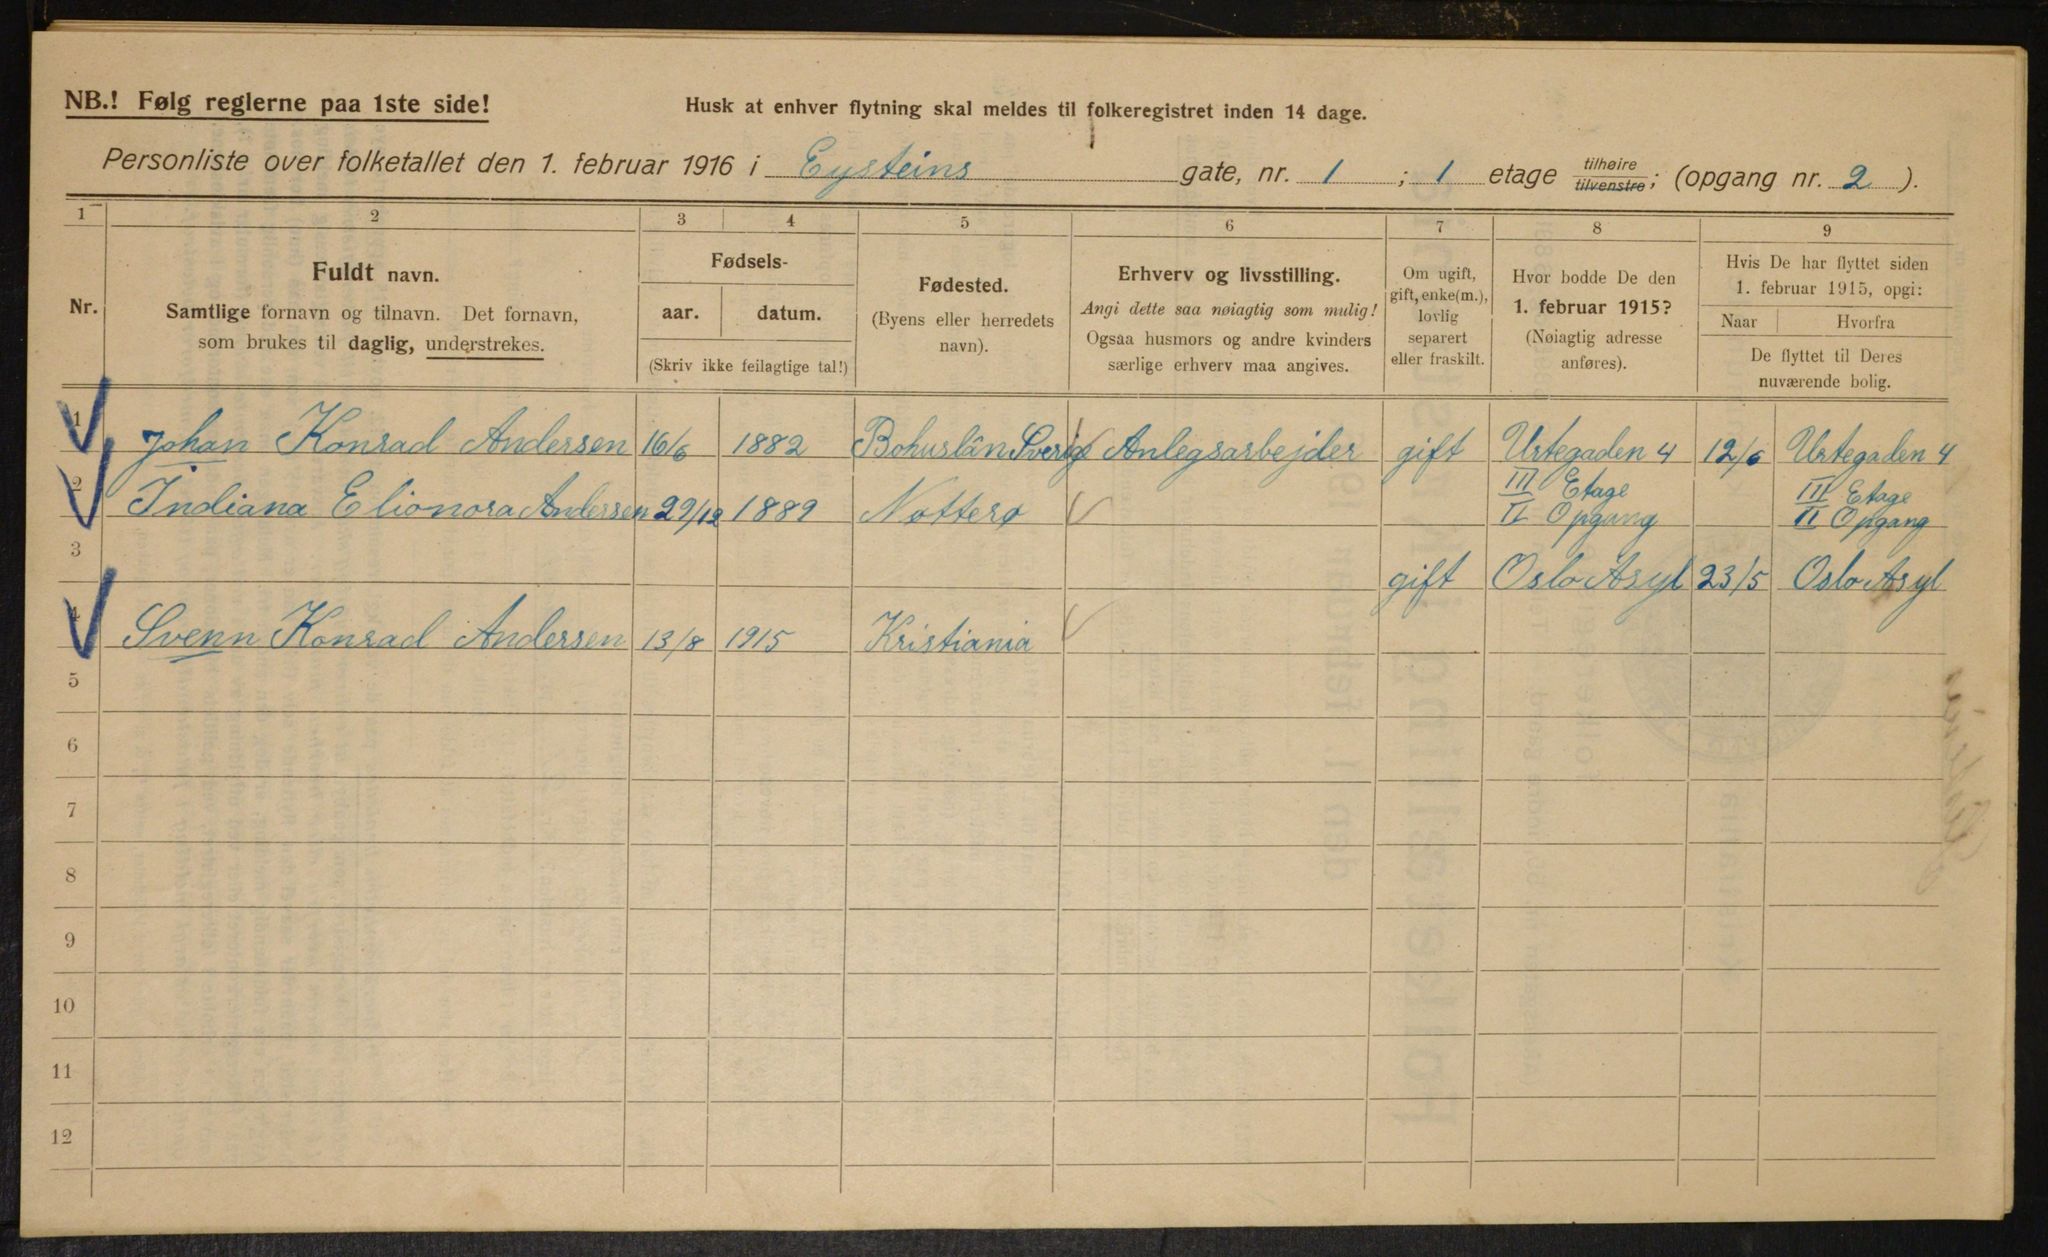 NB.! Følg reglerne paa 1ste side!
Husk at enhver flytning skal meldes til folkeregistret inden 14 dage.
Personliste over folketallet den 1. februar 1916 i Eysteins gate, nr. 1 ; 1 etage tilhøire tilvenstre; (opgang nr. 2 ).
1 2 3 4 5 6 7 8 9
Nr.
Fuldt navn.
Samtlige fornavn og tilnavn. Det fornavn,
som brukes til daglig, understrekes.
Fødsels-
aar. datum.
(Skriv ikke feilagtige tal!)
Fødested.
(Byens eller herredets
navn).
Erhverv og livsstilling.
Angi dette saa nøiagtig som mulig!
Ogsaa husmors og andre kvinders
særlige erhverv maa angives.
Om ugift,
gift, enke(m.),
lovlig
separert
eller fraskilt.
Hvor bodde De den
1. februar 1915?
(Nøiagtig adresse
anføres).
Hvis De har flyttet siden
1. februar 1915, opgi:
Naar Hvorfra
De flyttet til Deres
nuværende bolig.
1 Johan Konrad Andersen 16/6 1882 Bohuslän Sverige Anlegsarbejder gift Urtegaden 4 12/6 Urtegaden 4
2 Indiana Elionora Andersen 29/12 1889 Nøtterø III Etage II Opgang III Etage II Opgang
3 gift Oslo Asyl 23/5 Oslo Asyl
4 Svenn Konrad Andersen 13/8 1915 Kristiania
5
6
7
8
9
10
11
12